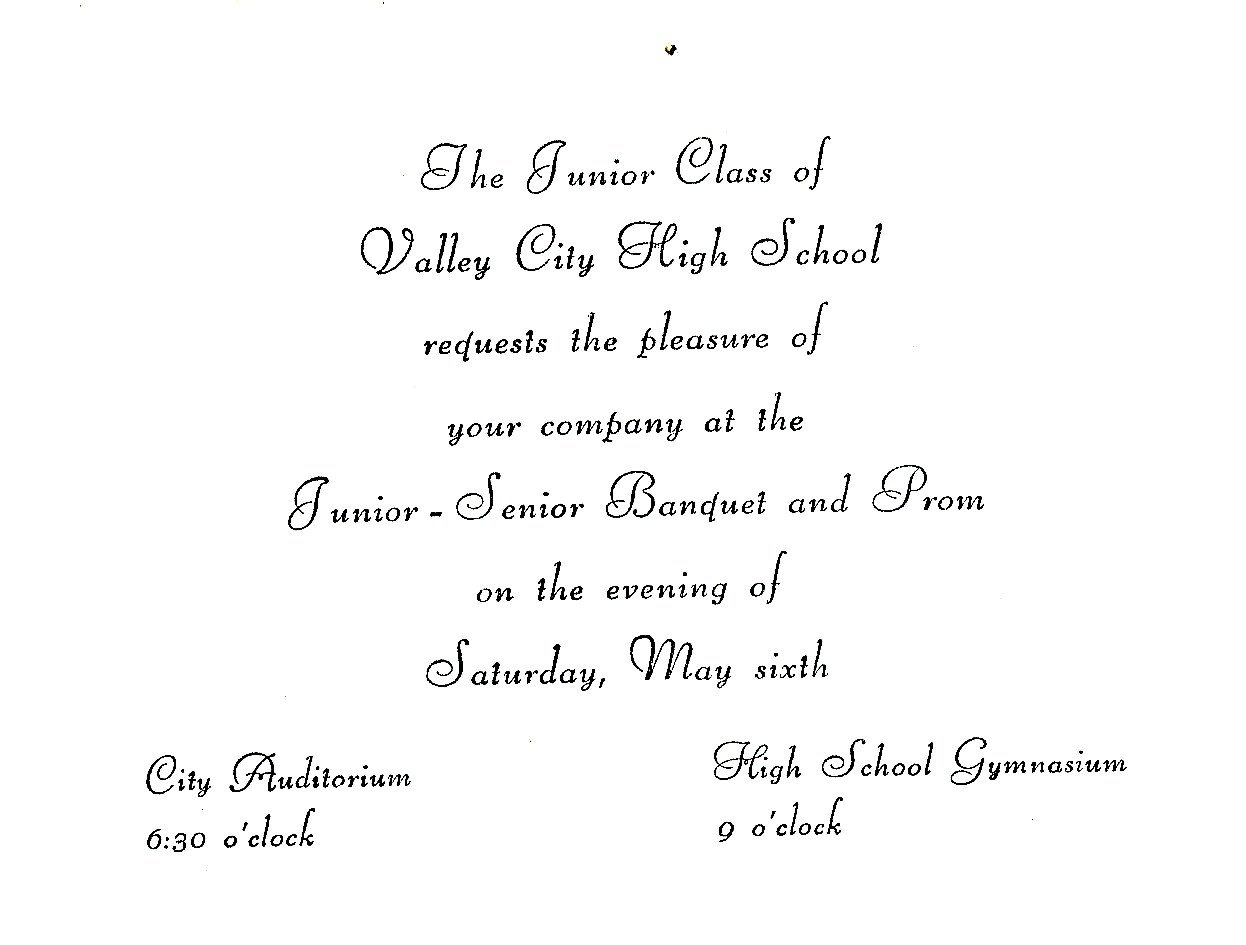 The Junior Class of
Valley City High School
requests the pleasure of
your company at the
Junior - Senior Banquet and Prom
on the evening of
Saturday, May sixth
City Auditorium
6:30 o'clock
High School Gymnasium
9 o'clock